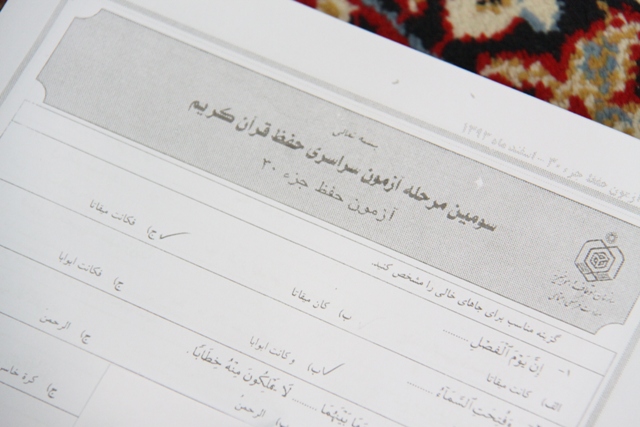 آزمون حفظ جزء ۳۰ - اسفند ماه ۱۳۹۳
بسمه تعالی
سومین مرحله آزمون سراسری حفظ قرآن کریم
آزمون حفظ جزء ۳۰
گزینه مناسب برای جاهای خالی را مشخص کنید.
۱- إِنَّ يَوْمَ ٱلْفَصْلِ ............
الف) کانت میقاتا ب) کان میقاتا ج) فکانت میقاتا
وَفُتِحَتِ ٱلسَّمَآءُ ............
ب) وکانت ابوابا ج) فکانت ابوابا
وَمَا بَيْنَهُمَا ............ لَا يَمْلِكُونَ مِنْهُ خِطَابًا.
ب) الرحمنُ ج) الرحمنَ
ج) کرة خاسرة